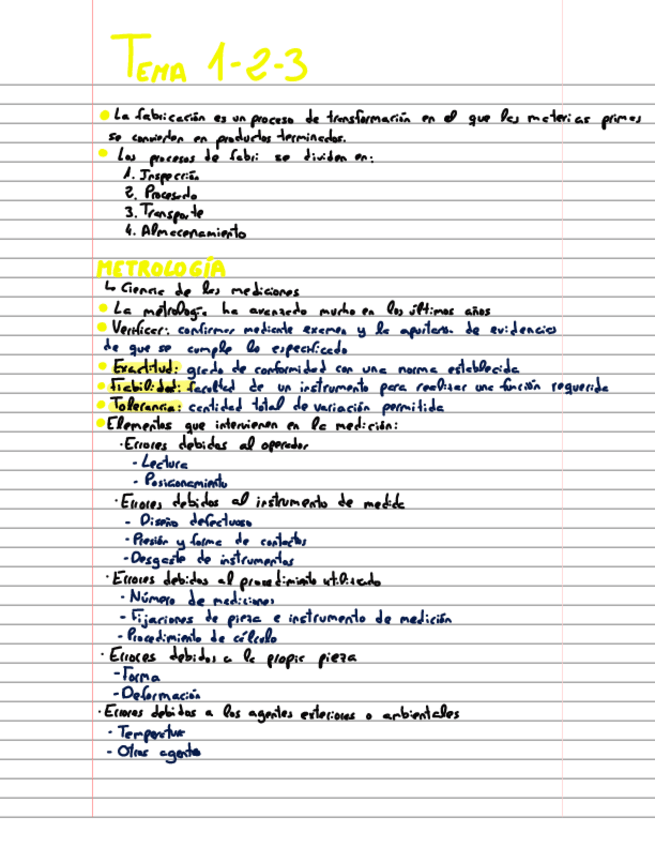 TEMA 1-2-3
La fabricación es un proceso de transformación en el que las materias primas
se convierten en productos terminados.
Los procesos de fabri se dividen en:
1. Inspección
2. Procesado
3. Transporte
4. Almacenamiento
METROLOGÍA
↳ Ciencia de las mediciones
La metrología ha avanzado mucho en los últimos años
Verificar: confirmar mediante examen y la aportación de evidencias
de que se cumple lo especificado
Exactitud: grado de conformidad con una norma establecida
Fiabilidad: facultad de un instrumento para realizar una función requerida
Tolerancia: cantidad total de variación permitida
Elementos que intervienen en la medición:
· Errores debidas al operador
- Lectura
- Posicionamiento
· Errores debidos al instrumento de medida
- Diseño defectuoso
- Presión y forma de contactos
- Desgaste de instrumentos
· Errores debidos al procedimiento utilizado
- Número de mediciones
- Fijaciones de pieza e instrumento de medición
- Procedimiento de cálculo
· Errores debidos a la propia pieza
- Forma
- Deformación
· Errores debidos a los agentes exteriores o ambientales
- Temperatura
- Otros agentes